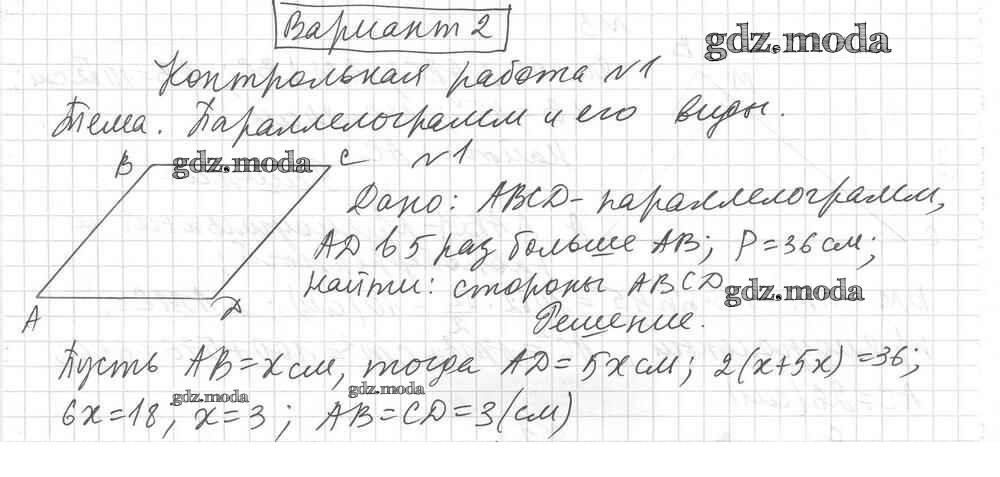 Вариант 2
gdz.moda
Контрольная работа №1
Тема. Параллелограмм и его виды.
B gdz.moda C №1
Дано: ABCD - параллелограмм,
AD в 5 раз больше AB; P = 36 см;
Найти: стороны ABCD
gdz.moda
A D
Решение.
Пусть AB = x см, тогда AD = 5x см; 2(x+5x) = 36;
gdz.moda gdz.moda
6x = 18; x = 3; AB = CD = 3 (см)